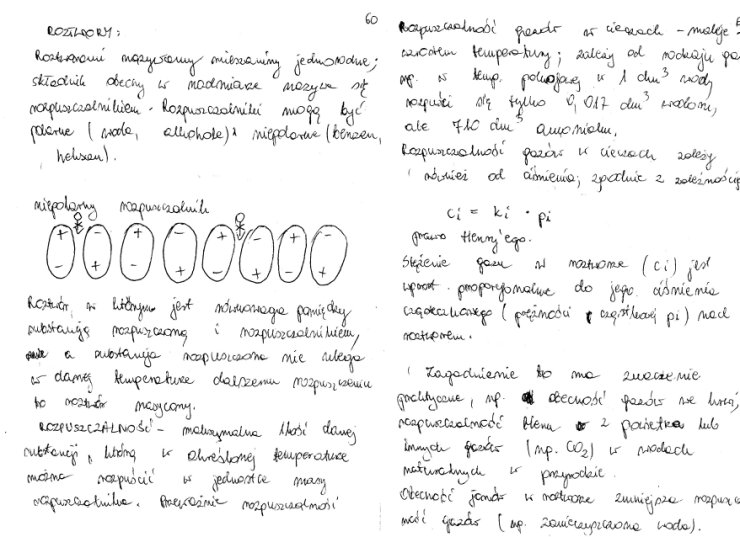 60
ROZTWORY:
Roztworami nazywamy mieszaniny jednorodne;
składnik obecny w nadmiarze nazywa się
rozpuszczalnikiem. Rozpuszczalniki mogą być
polarne (woda, alkohole) i niepolarne (benzen,
heksan).
niepolarny rozpuszczalnik
+ - + - + - + -
- + - + - + - +
Roztwór, w którym jest równowaga pomiędzy
substancją rozpuszczoną i rozpuszczalnikiem,
a substancja rozpuszczona nie ulega
w danej temperaturze dalszemu rozpuszczeniu
to roztwór nasycony.
ROZPUSZCZALNOŚĆ - maksymalna ilość danej
substancji, którą w określonej temperaturze
można rozpuścić w jednostce masy
rozpuszczalnika. Przeważnie rozpuszczalność
Rozpuszczalność gazów w cieczach - maleje z
wzrostem temperatury; zależy od rodzaju
np. w temp. pokojowej w 1 dm³ wody
rozpuści się tylko 0,017 dm³ wodoru,
ale 710 dm³ amoniaku.
Rozpuszczalność gazów w cieczach zależy
również od ciśnienia; zgodnie z zależnością
ci = ki · pi
prawo Henry'ego.
Stężenie gazu w roztworze (ci) jest
wprost proporcjonalne do jego ciśnienia
cząstkowego (prężności cząstkowej pi) nad
roztworem.
Zagadnienie to ma znaczenie
praktyczne, np. obecność gazów we krwi,
rozpuszczalność tlenu z powietrza lub
innych gazów (np. CO₂) w wodach
naturalnych w przyrodzie.
Obecność jonów w roztworze zmniejsza rozpuszczal
ność gazów (np. zanieczyszczona woda).